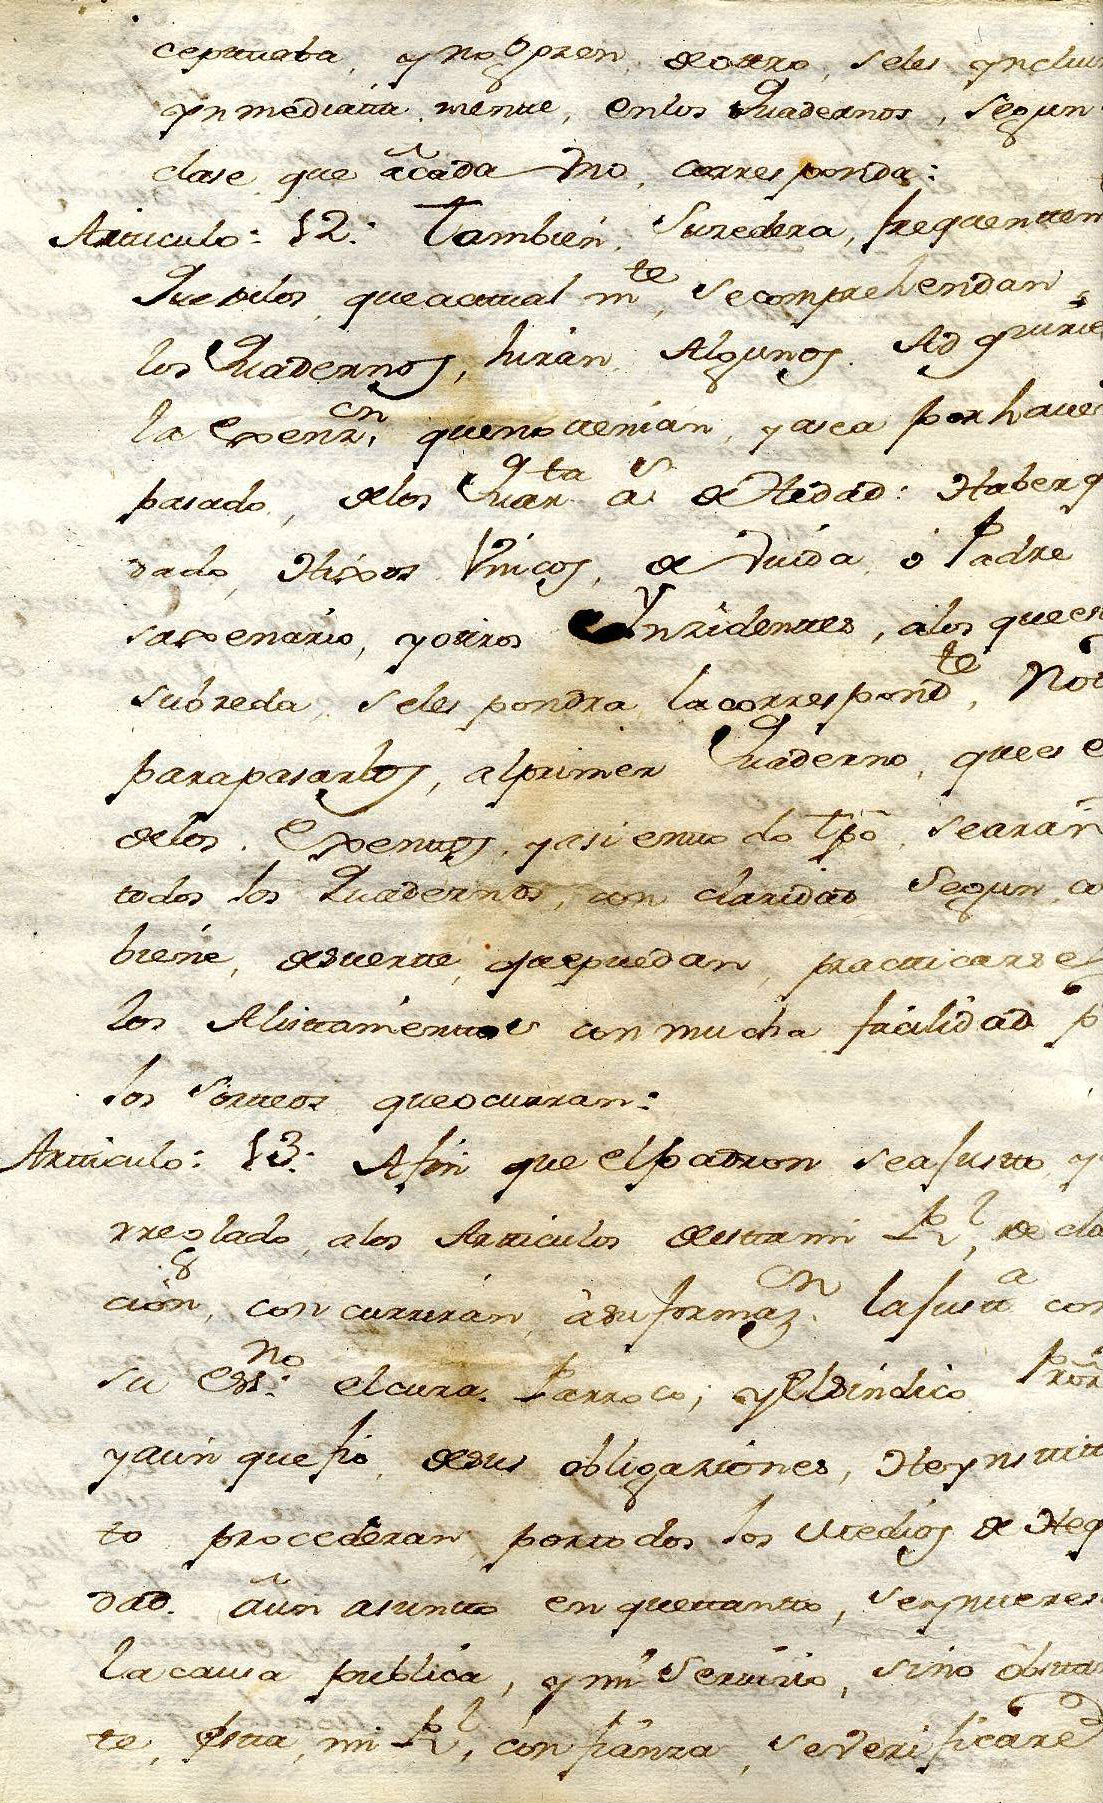 ceptuaba, y no gozen de otro, seles ynclui
ynmediatta mentte, en los Quadernos, segun
clase que âcada Vno, corresponda:
Artticulo: 12: Tambien, Suzedera, frequenttem
Que delos, que acttual mte, se comprehendan,
los Quadernos, hirán Algunos Adquirie
la Exenzcn, que no ttenian, ya sea por haver
pasado, delos Quarta as de Hedad: Haber q
dado, Hixos Vnicos, de Viuda, ó Padre
saxenario, y ottros Ynzidenttes, alos que es
subzeda, seles pondra, la correspondte, Not
para pasarlos, al primer Quaderno, que es e
delos. Exenttos, y asi entto do tpô, searán
todos los Quadernos, con claridad Segun, co
biene, desuertte, que puedan, practticarse
los Alisttamienttos con mucha facilidad p
los Sortteos que ocurran:
Artticulo: 13: Afin que el padron sea justto, y
rreglado, alos Artticulos desttami Rl, de cla
ción, con currirán, àsu formazn. la justta con
su Essno: el cura Parroco; y el Sindico Pror
y aun que fio, desus obligaziones, He ynstitt
to procederan, por todos los Medios de Heq
dad. âun asuntto en que ttantto, se ynteres
la causa publica, y mi Servizio, sino obstta
te, Estta, mi Rl, confianza, se verificare